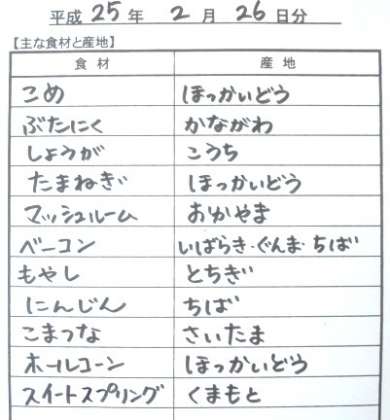 平成 25 年 2 月 26 日分
【主な食材と産地】
食材 産地
こめ ほっかいどう
ぶたにく かながわ
しょうが こうち
たまねぎ ほっかいどう
マッシュルーム おかやま
ベーコン いばらき・ぐんま・ちば
もやし とちぎ
にんじん ちば
こまつな さいたま
ホールコーン ほっかいどう
スイートスプリング くまもと